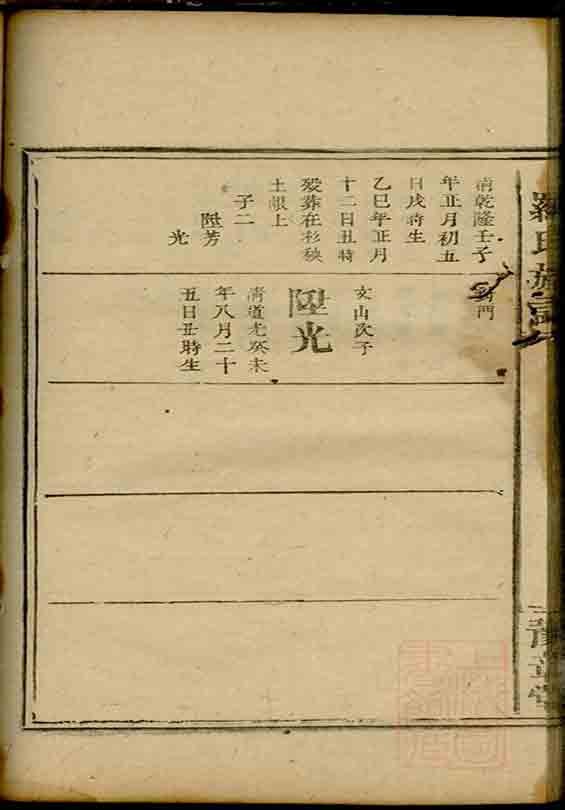 羅氏族譜
豫章堂
清乾隆壬子
年正月初五
日戌時生
乙巳年正月
十二日丑時
歿葬在杉秧
土嘏上
子二
陞芳
光
文山次子
陞光
清道光癸未
年八月二十
五日丑時生